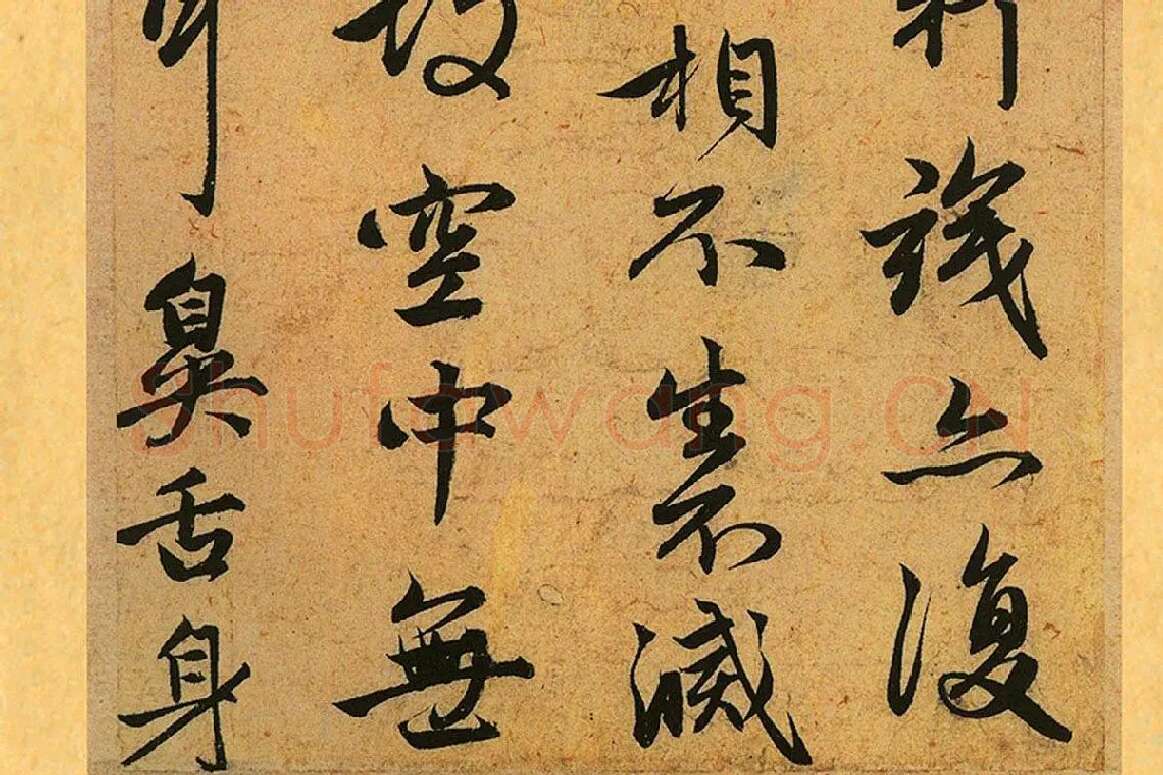 行識亦復
相不生不滅
故空中無
耳鼻舌身
shufawang.CN